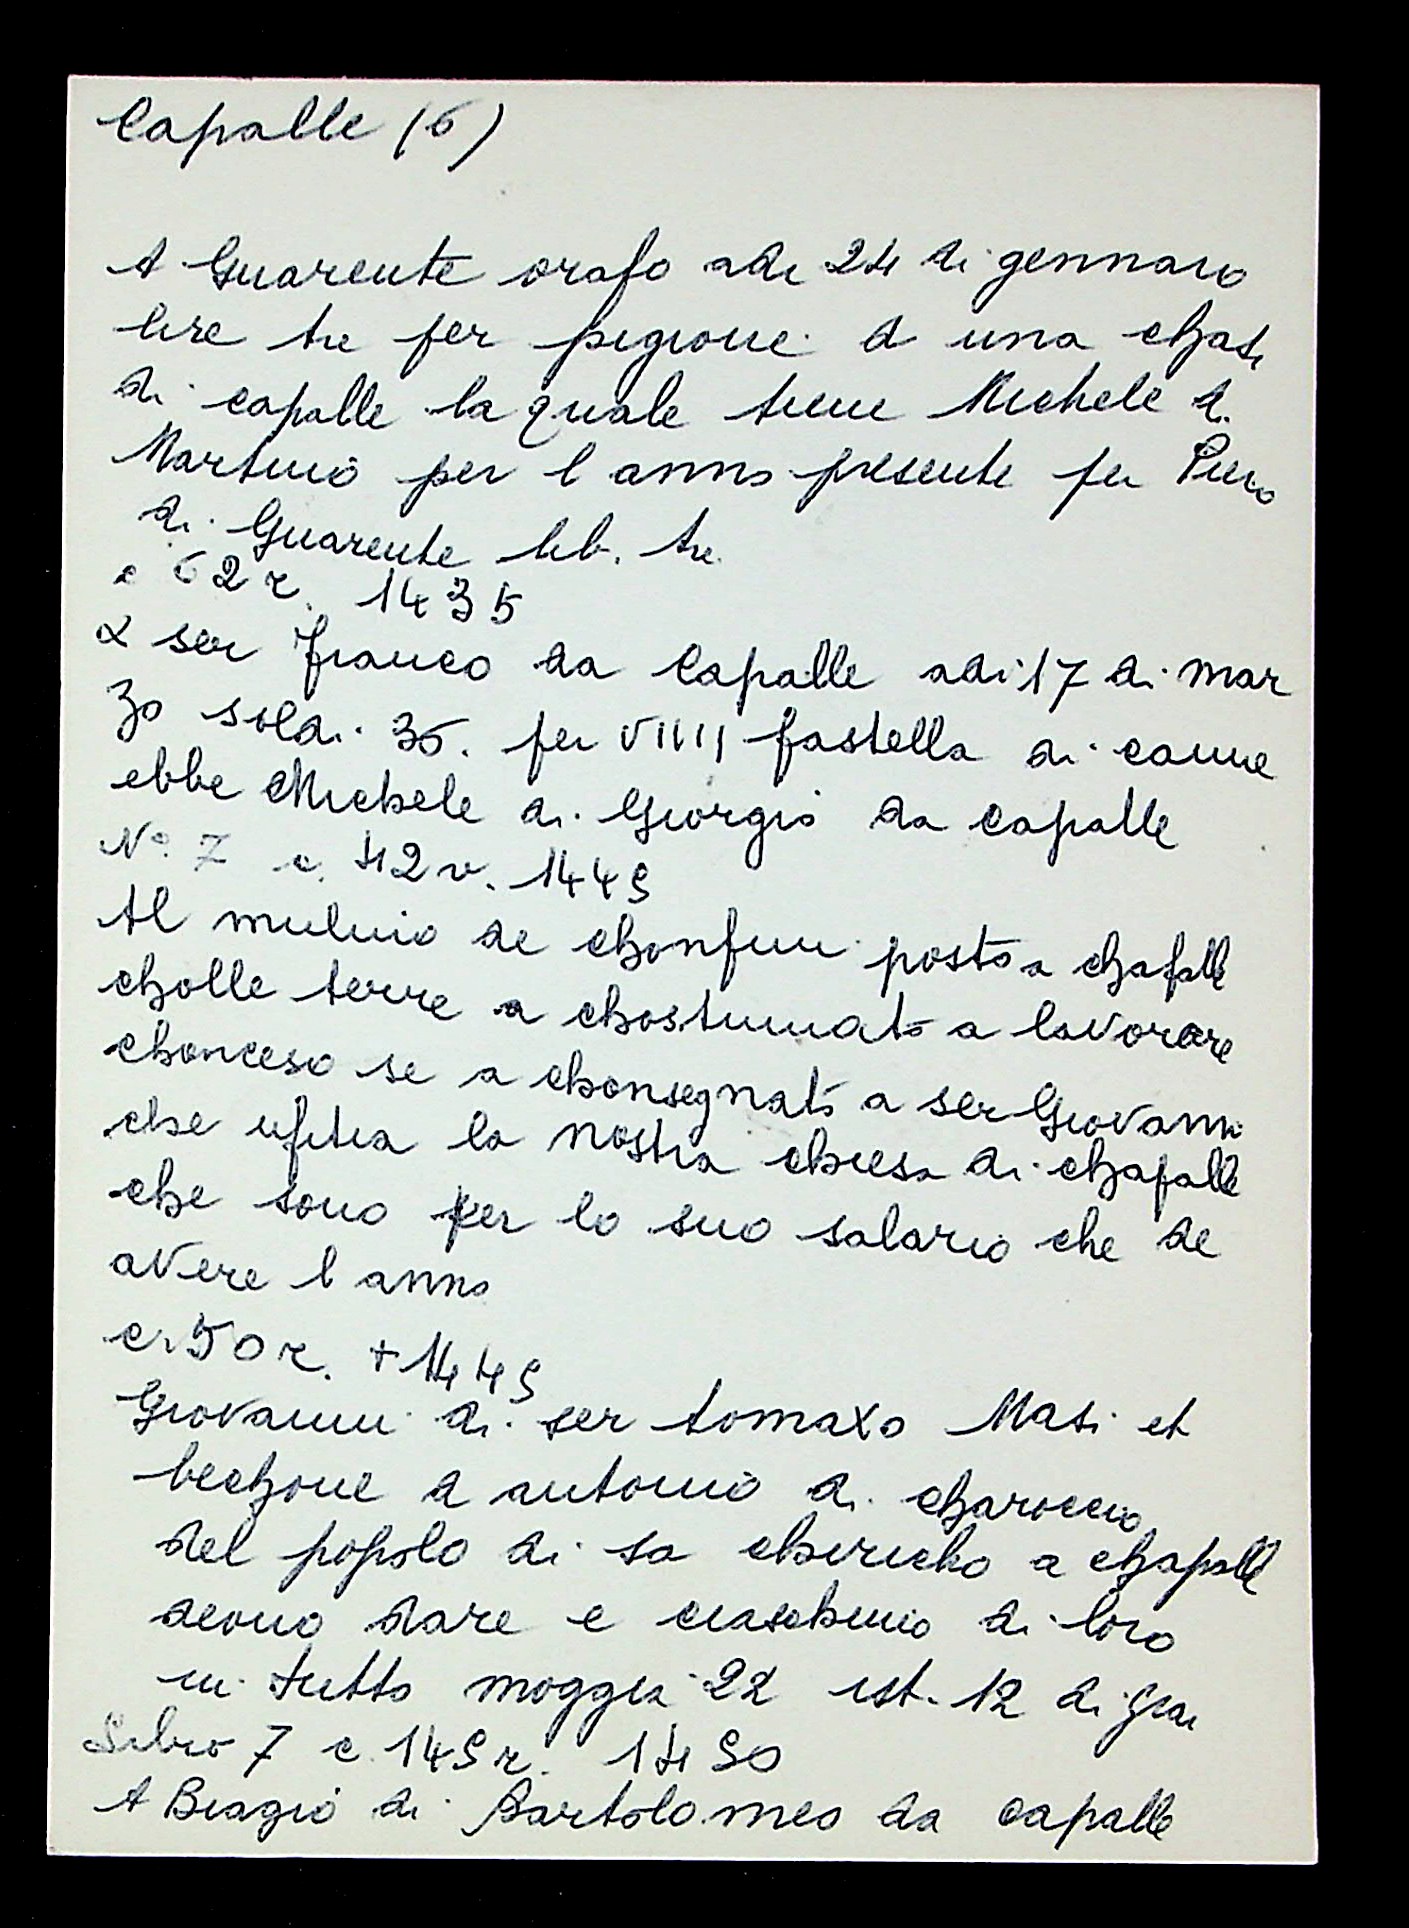 Capalle (6)
A Guarente orafo adi 24 di gennaio
lire tre per pigione d una chasi
di capalle la quale tiene Michele di
Martino per l anno presente per Piero
di Guarente lib. tre
c 62 r. 1435
A ser franco da Capalle adi 17 di mar
zo soldi 36. per VIIII fastella di canne
ebbe Michele di Giorgio da capalle
N° 7 c. 42 v. 1449
Al mulino de chonfini posto a chapalle
cholle terre a chostumato a lavorare
chonceso se a chonsegnato a ser Giovanni
che ufitia la nostra chiesa di chapalle
che sono per lo suo salario che de
avere l anno
c. 50 r. + 1449
Giovanni di ser tomaxo Masi et
bechone d antonio di charoccio
del popolo di sa chiricho a chapalle
deono dare e ciaschuno di loro
in tutto moggia 22 ist. 12 di gra
Libro 7 c. 149 r. 1490
A Biagio di Bartolomeo da capalle